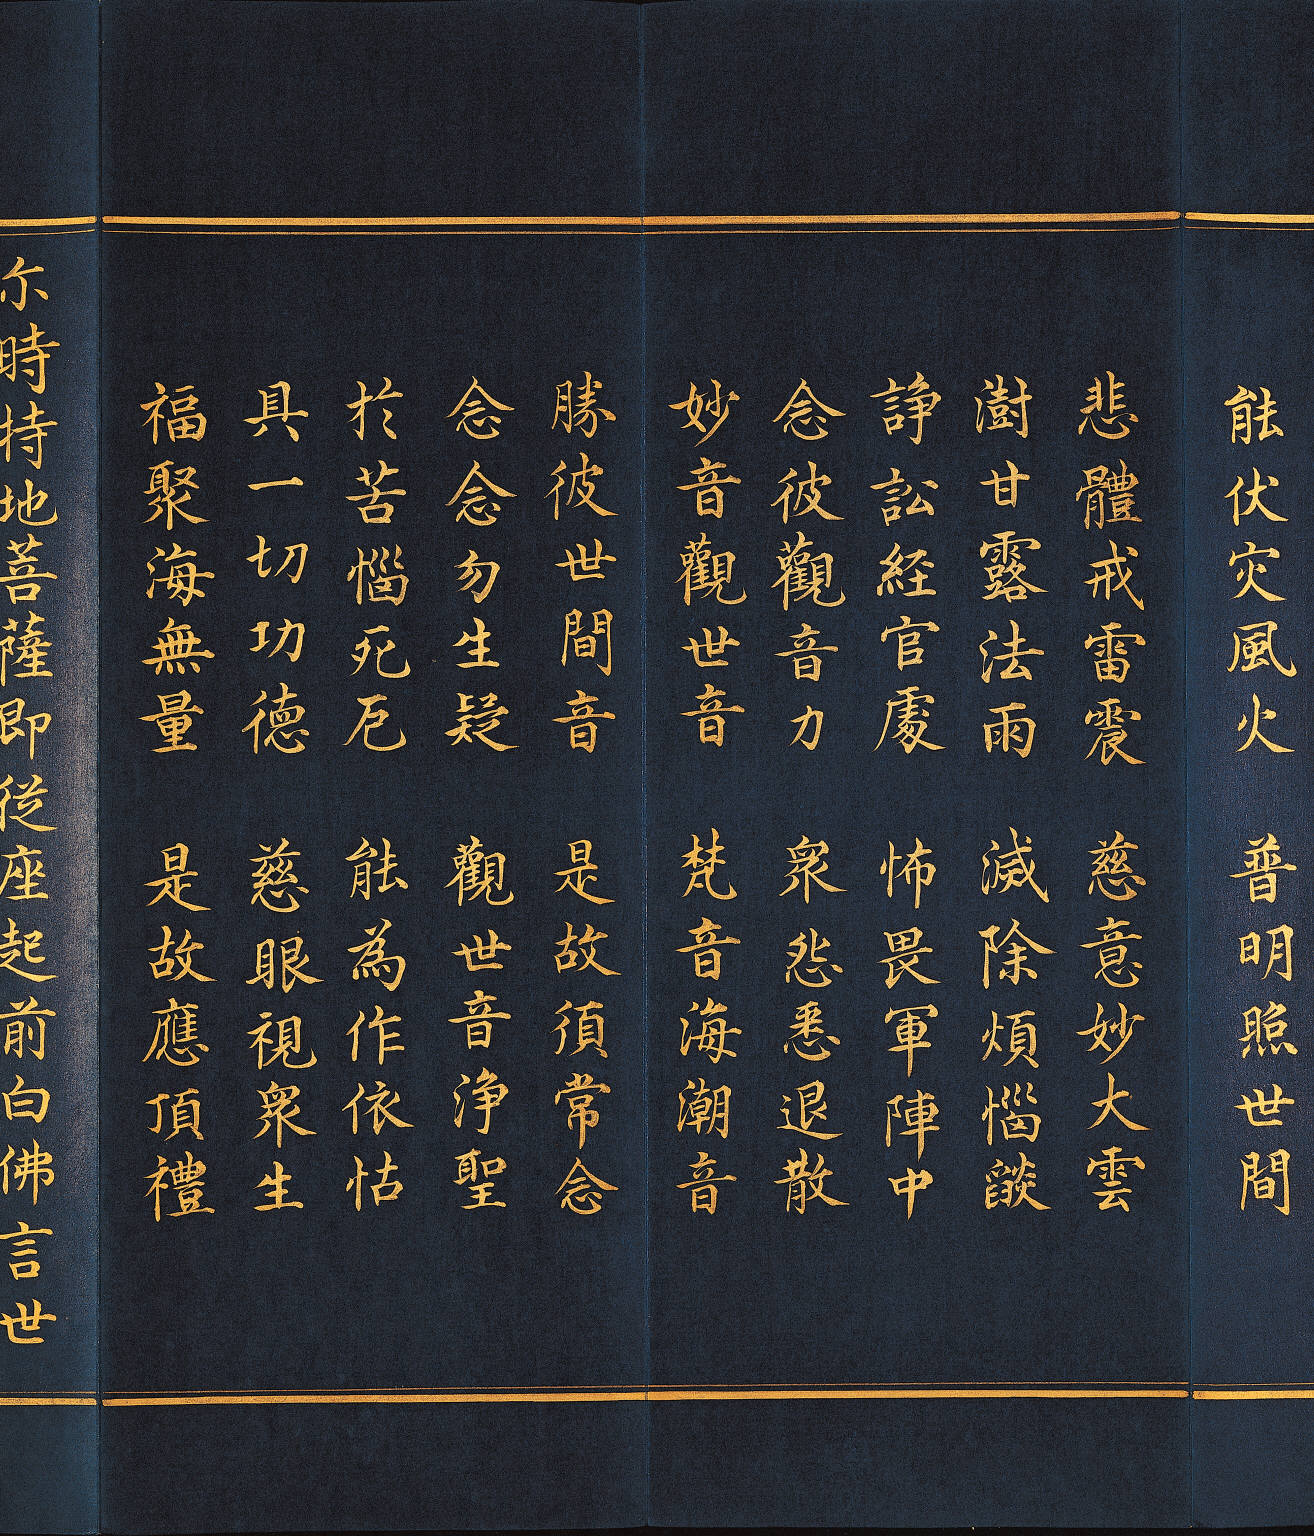 能伏灾風火　普明照世間
悲體戒雷震　慈意妙大雲
澍甘露法雨　滅除煩惱燄
諍訟経官處　怖畏軍陣中
念彼觀音力　衆怨悉退散
妙音觀世音　梵音海潮音
勝彼世間音　是故須常念
念念勿生疑　觀世音淨聖
於苦惱死厄　能為作依怙
具一切功德　慈眼視衆生
福聚海無量　是故應頂禮
尒時持地菩薩即從座起前白佛言世